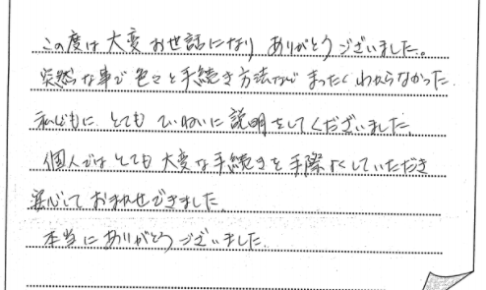 この度は大変お世話になり ありがとうございました。
突然な事で色々と手続き方法など まったくわからなかった
私どもに とても ていねいに説明をしてくださいました。
個人では とても 大変な手続きを手際よくしていただき
安心して おまかせできました。
本当にありがとうございました